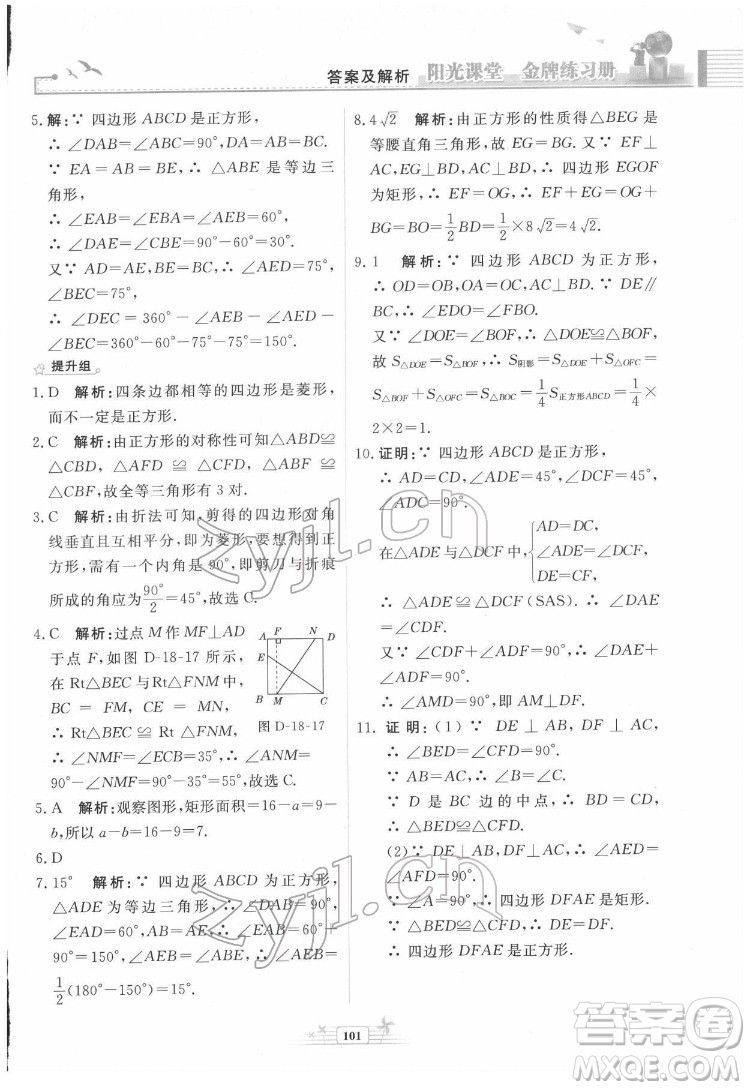 答案及解析 阳光课堂 金牌练习册
5. 解:∵ 四边形 ABCD 是正方形,
∴ ∠DAB=∠ABC=90°,DA=AB=BC.
∵ EA=AB=BE,∴ △ABE 是等边三
角形,
∴ ∠EAB=∠EBA=∠AEB=60°,
∴ ∠DAE=∠CBE=90°-60°=30°.
又∵ AD=AE,BC=BE,∴ ∠AED=75°,
∠BEC=75°,
∴ ∠DEC = 360° - ∠AEB - ∠AED -
∠BEC=360°-60°-75°-75°=150°.
提升组
1. D 解析:四条边都相等的四边形是菱形,
而不一定是正方形.
2. C 解析:由正方形的对称性可知△ABD≌
△CBD, △AFD ≌ △CFD, △ABF ≌
△CBF,故全等三角形有 3 对.
3. C 解析:由折法可知,剪得的四边形对角
线垂直且互相平分,即为菱形,要想得到正
方形,需有一个内角是 90°,即剪刀与折痕
所成的角应为90°/2=45°,故选 C.
4. C 解析:过点 M 作 MF⊥AD
于点 F,如图 D-18-17 所示,
在 Rt△BEC 与Rt△FNM 中,
BC = FM, CE = MN,
∴ Rt△BEC ≌ Rt △FNM,
∴ ∠NMF=∠ECB=35°,∴ ∠ANM=
90°-∠NMF=90°-35°=55°,故选 C.
A F N D
E
B M C
图 D-18-17
5. A 解析:观察图形,矩形面积=16-a=9-
b,所以 a-b=16-9=7.
6. D
7. 15° 解析:∵ 四边形 ABCD 为正方形,
△ADE 为等边三角形,∴ ∠BAD=90°,
∠EAD=60°,AB=AD=AE,∴ ∠BAE=
90°+60°=150°,∠AEB=∠ABE,∴ ∠AEB=
1/2(180°-150°)=15°.
8. 4√2 解析:由正方形的性质得△BEG 是
等腰直角三角形,故 EG=BG. 又∵ EF⊥
AC,EG⊥BD,AC⊥BD,∴ 四边形 EGOF
为矩形,∴ EF=OG,∴ EF+EG=OG+
BG=BO=1/2BD=1/2×8√2=4√2.
9. 1 解析:∵ 四边形 ABCD 为正方形,
∴ OD=OB,OA=OC,AC⊥BD. ∵ DE∥
BC,∴ ∠EDO=∠FBO.
又∵ ∠DOE=∠BOF,∴ △DOE≌△BOF,
故 S△DOE=S△BOF,∴ S阴影=S△DOE+S△OFC=
S△BOF+S△OFC=S△BOC=1/4S正方形ABCD=1/4×
2×2=1.
10. 证明:∵ 四边形 ABCD 是正方形,
∴ AD=CD, ∠ADE=45°, ∠DCF=45°,
∠ADC=90°.
在△ADE 与△DCF 中,{AD=DC,
∠ADE=∠DCF,
DE=CF,
∴ △ADE ≌ △DCF (SAS). ∴ ∠DAE
=∠CDF.
又∵ ∠CDF+∠ADM=90°,
∴ ∠DAE+∠ADM=90°,
∴ ∠AMD=90°,即 AM⊥DF.
11. 证明:(1) ∵ DE ⊥ AB, DF ⊥ AC,
∴ ∠BED=∠CFD=90°.
∵ AB=AC,∴ ∠B=∠C.
∵ D 是 BC 边的中点,∴ BD=CD,
∴ △BED≌△CFD.
(2) ∵ DE⊥AB,DF⊥AC,∴ ∠AED=
∠AFD=90°.
∵ ∠A=90°,∴ 四边形 DFAE 是矩形.
∵ △BED≌△CFD,∴ DE=DF,
∴ 四边形 DFAE 是正方形.
101
zyjl.cn
zyjl.cn
答案圈
MXQE.COM